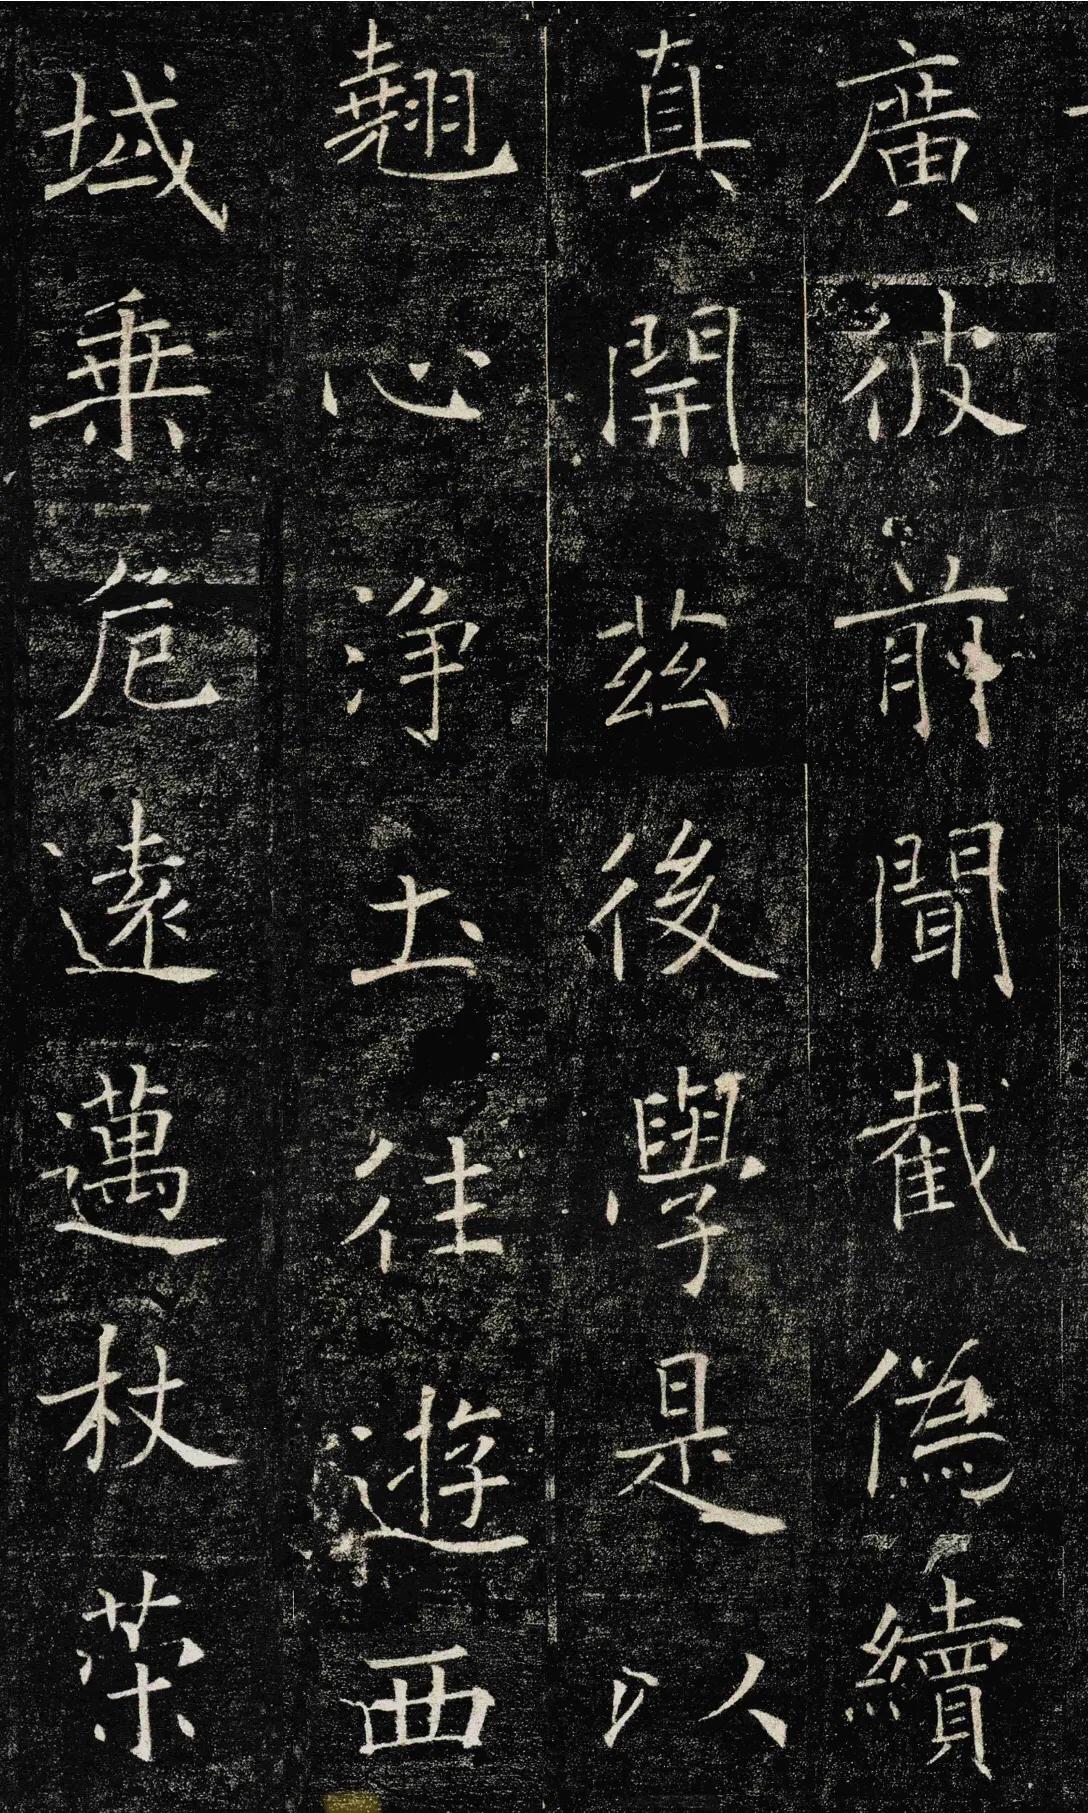 廣彼前聞截偽續
真開茲後學是以
翹心淨土往遊西
域乗危遠邁杖策